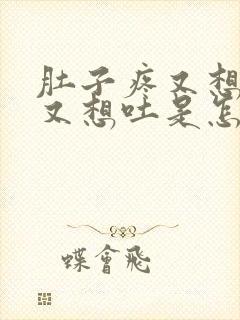 肚子疼又想
又想吐是怎
蝶會飛